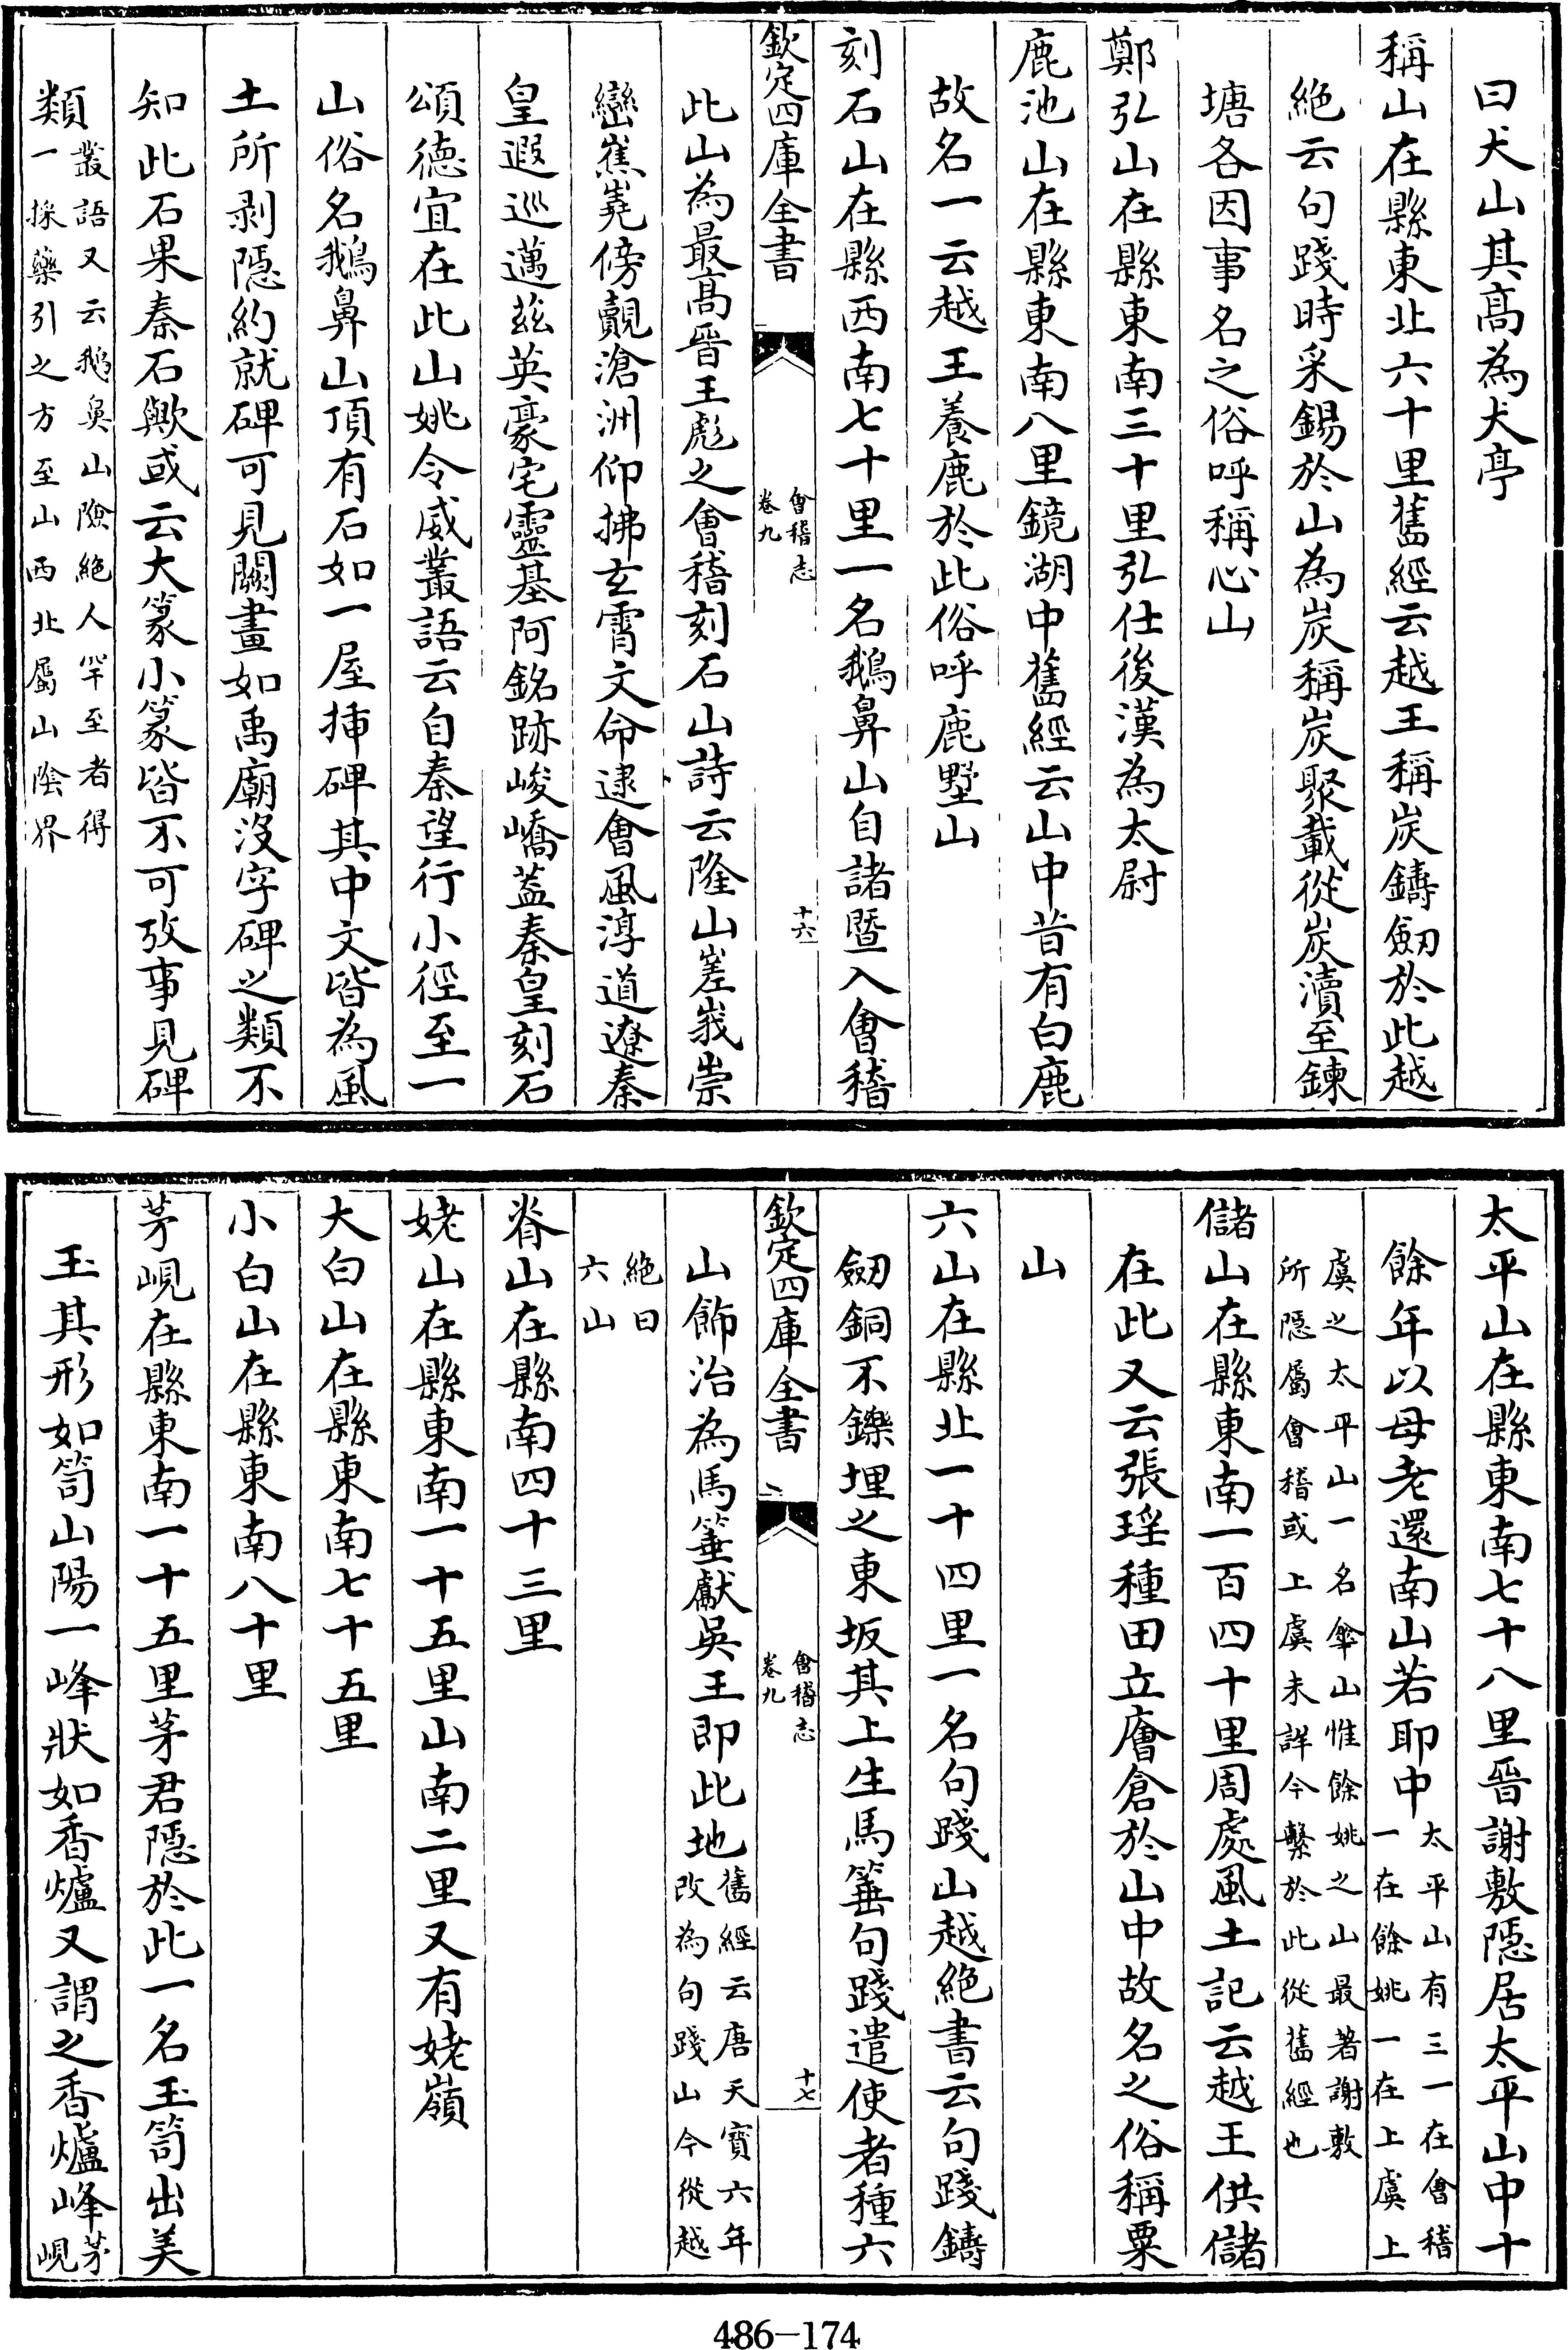 曰犬山其髙為犬亭
稱山在縣東北六十里舊經云越王稱炭鑄劒於此越
絶云句踐時采錫於山為炭稱炭聚載從炭瀆至鍊
塘各因事名之俗呼稱心山
鄭弘山在縣東南三十里弘仕後漢為太尉
鹿池山在縣東南八里鏡湖中舊經云山中昔有白鹿
故名一云越王養鹿於此俗呼鹿墅山
刻石山在縣西南七十里一名鵝鼻山自諸暨入會稽
欽定四庫全書
會稽志
卷九
十六
此山為最髙晉王彪之會稽刻石山詩云隆山嵳峩崇
巒嶣嶤傍覿滄洲仰拂玄霄文命逮會風淳道遼秦
皇遐巡邁兹英豪宅靈基阿銘跡峻嶠葢秦皇刻石
頌德宜在此山姚令威叢語云自秦望行小徑至一
山俗名鵝鼻山頂有石如一屋挿碑其中文皆為風
土所剥隠約就碑可見闕畫如禹廟沒字碑之類不
知此石果秦石歟或云大篆小篆皆不可攷事見碑
類
叢語又云鵝鼻山險絶人罕至者得
一採藥引之方至山西北屬山隂界
太平山在縣東南七十八里晉謝敷隠居太平山中十
餘年以母老還南山若耶中
太平山有三一在會稽
一在餘姚一在上虞上
虞之太平山一名傘山惟餘姚之山最著謝敷
所隠屬會稽或上虞未詳今繫於此從舊經也
儲山在縣東南一百四十里周處風土記云越王供儲
在此又云張瑶種田立廥倉於山中故名之俗稱粟
山
六山在縣北一十四里一名句踐山越絶書云句踐鑄
劒銅不鑠埋之東坂其上生馬箠句踐遣使者種六
欽定四庫全書
會稽志
卷九
十七
山飾治為馬箠獻吳王即此地
舊經云唐天寳六年
改為句踐山今從越
絶曰
六山
脊山在縣南四十三里
姥山在縣東南一十五里山南二里又有姥嶺
大白山在縣東南七十五里
小白山在縣東南八十里
茅峴在縣東南一十五里茅君隠於此一名玉笥出美
玉其形如笥山陽一峰狀如香爐又謂之香爐峰
茅
峴
486-174